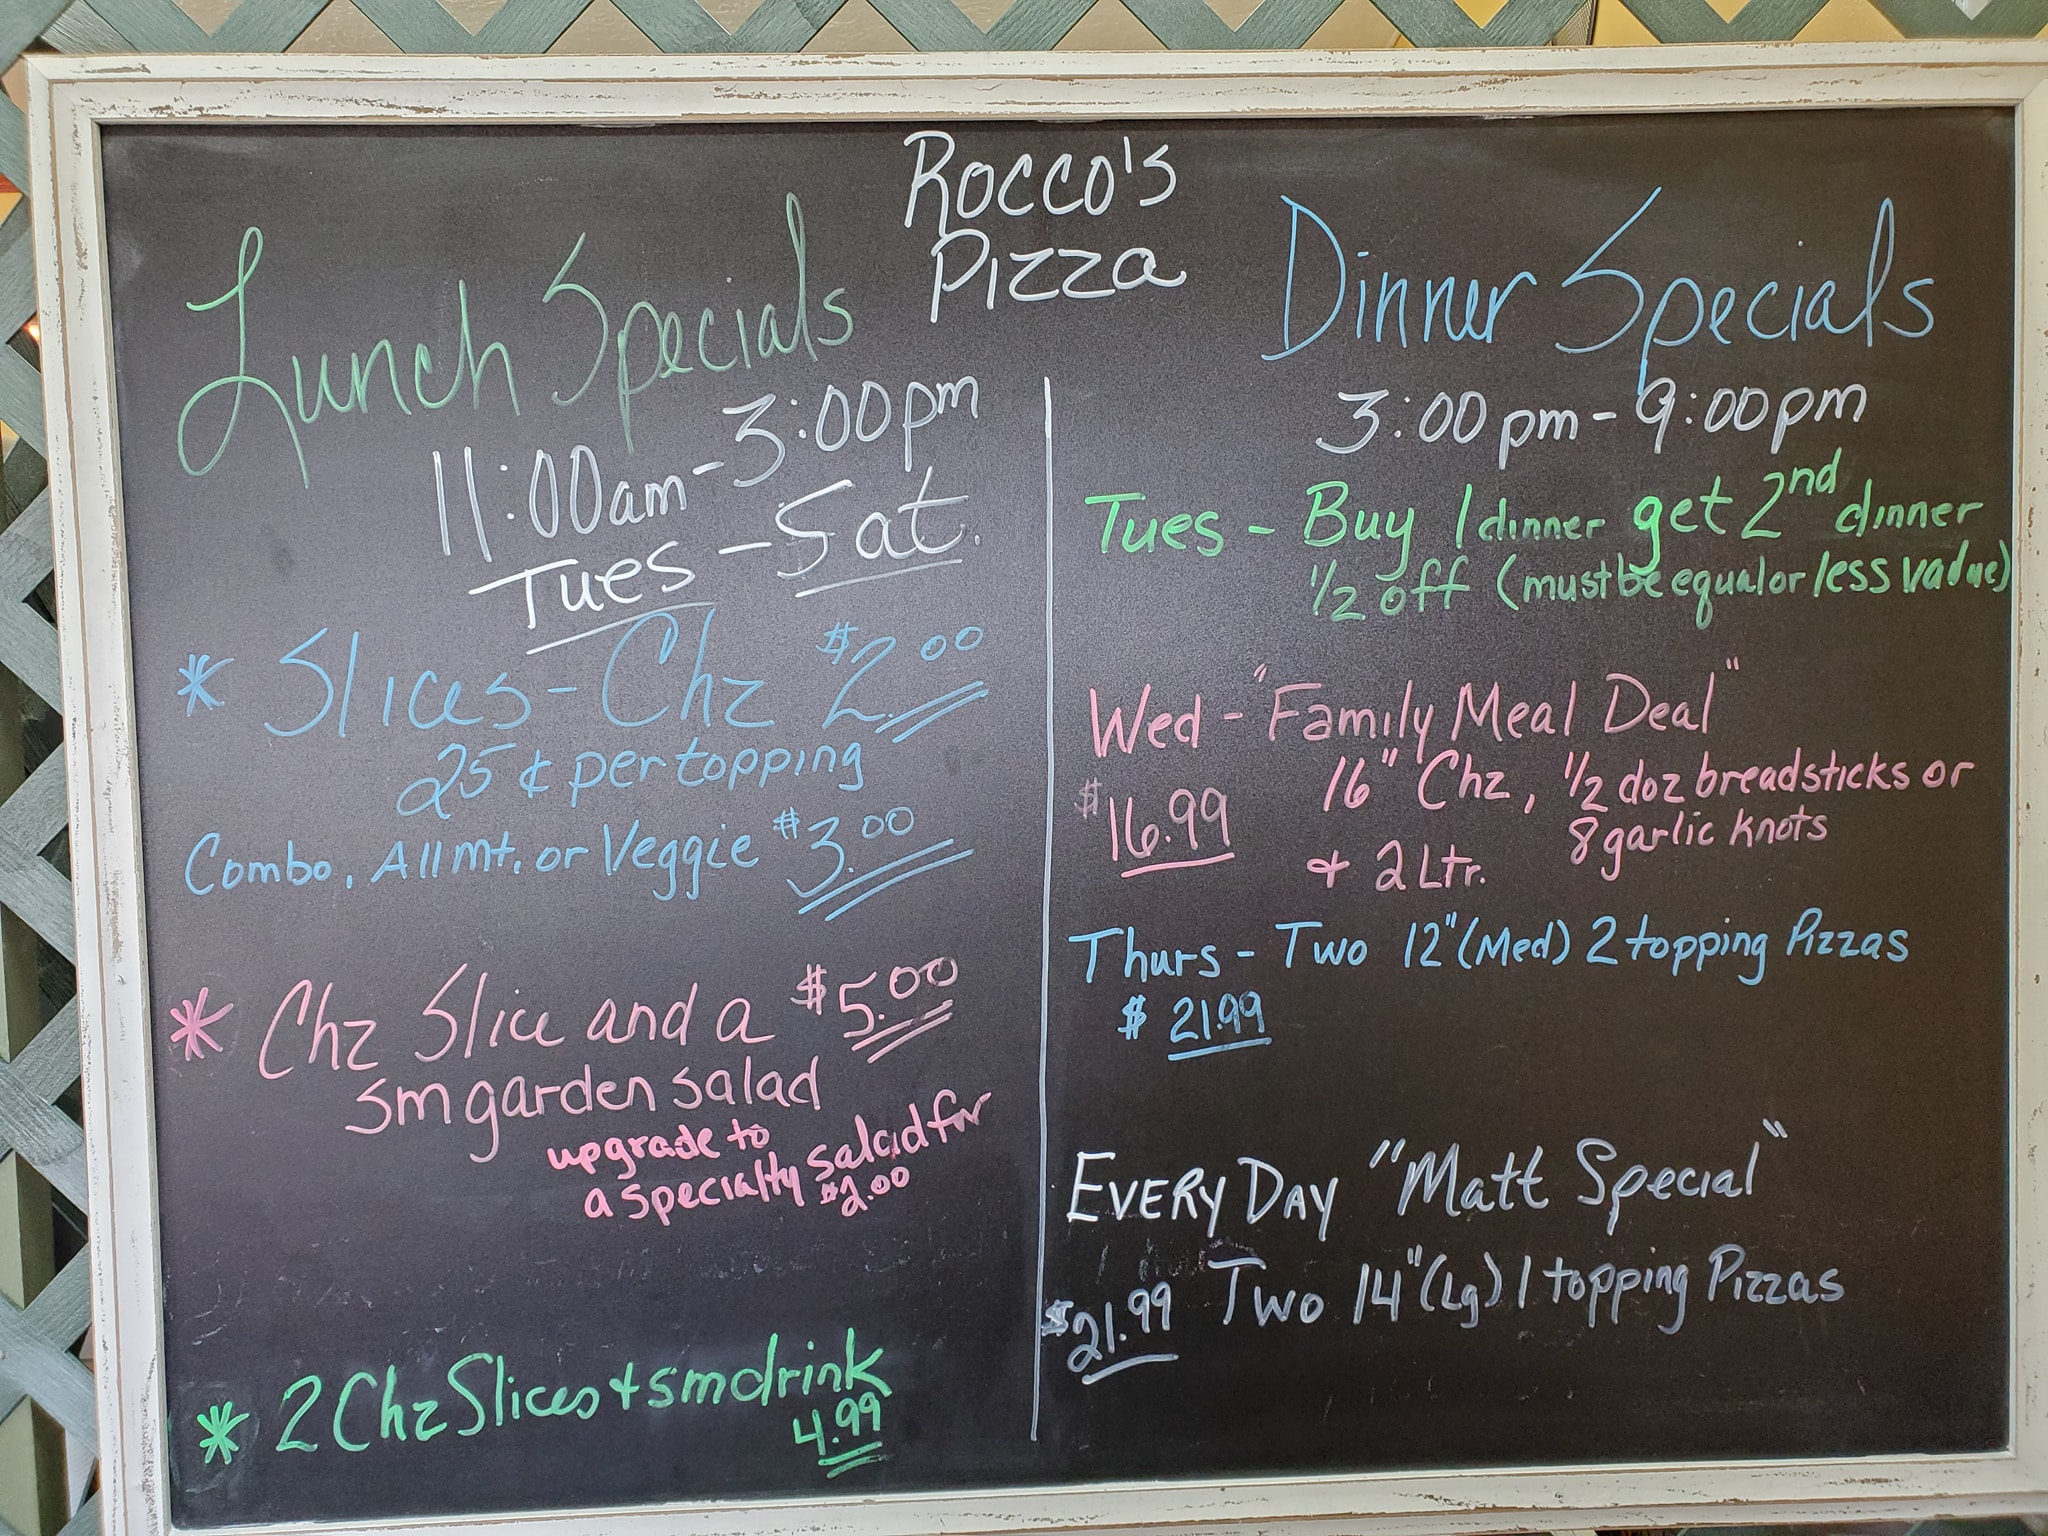 Rocco's
Pizza
Lunch Specials
11:00am - 3:00pm
Tues - Sat.
* Slices - Chz $2.00
25¢ per topping
Combo, All mt. or Veggie $3.00
* Chz Slice and a $5.00
sm garden salad
upgrade to
a specialty salad for
$2.00
* 2 Chz Slices + sm drink
4.99
Dinner Specials
3:00pm - 9:00pm
Tues - Buy 1 dinner get 2nd dinner
1/2 off (must be equal or less value)
Wed - "Family Meal Deal"
$16.99 16" Chz, 1/2 doz breadsticks or
8 garlic knots
+ 2 Ltr.
Thurs - Two 12" (Med) 2 topping Pizzas
$21.99
EVERY DAY "Matt Special"
$21.99 Two 14" (Lg) 1 topping Pizzas